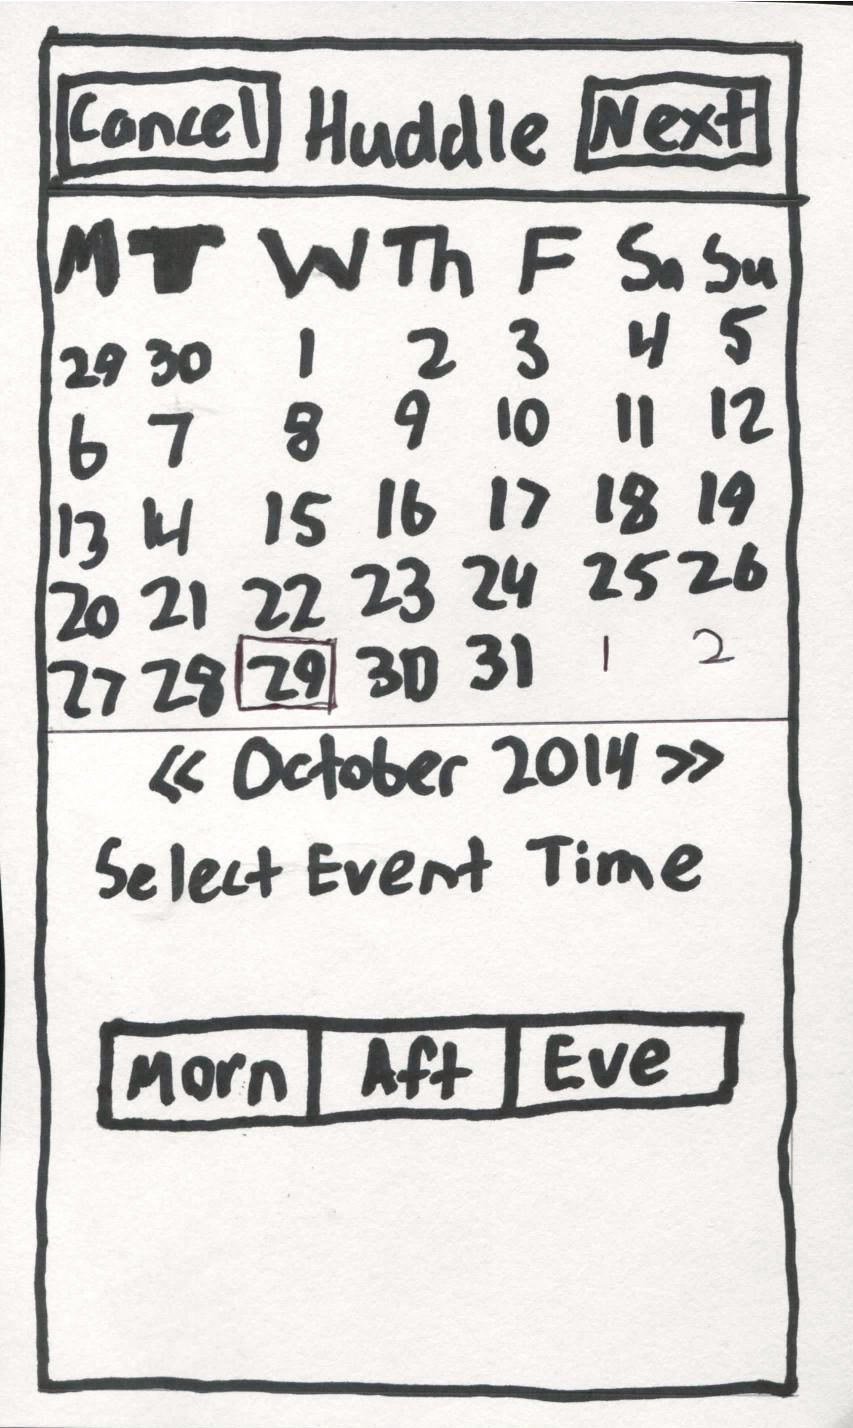 Cancel Huddle Next
M T W Th F Sa Su
29 30 1 2 3 4 5
6 7 8 9 10 11 12
13 14 15 16 17 18 19
20 21 22 23 24 25 26
27 28 29 30 31 1 2
<< October 2014 >>
Select Event Time
Morn Aft Eve